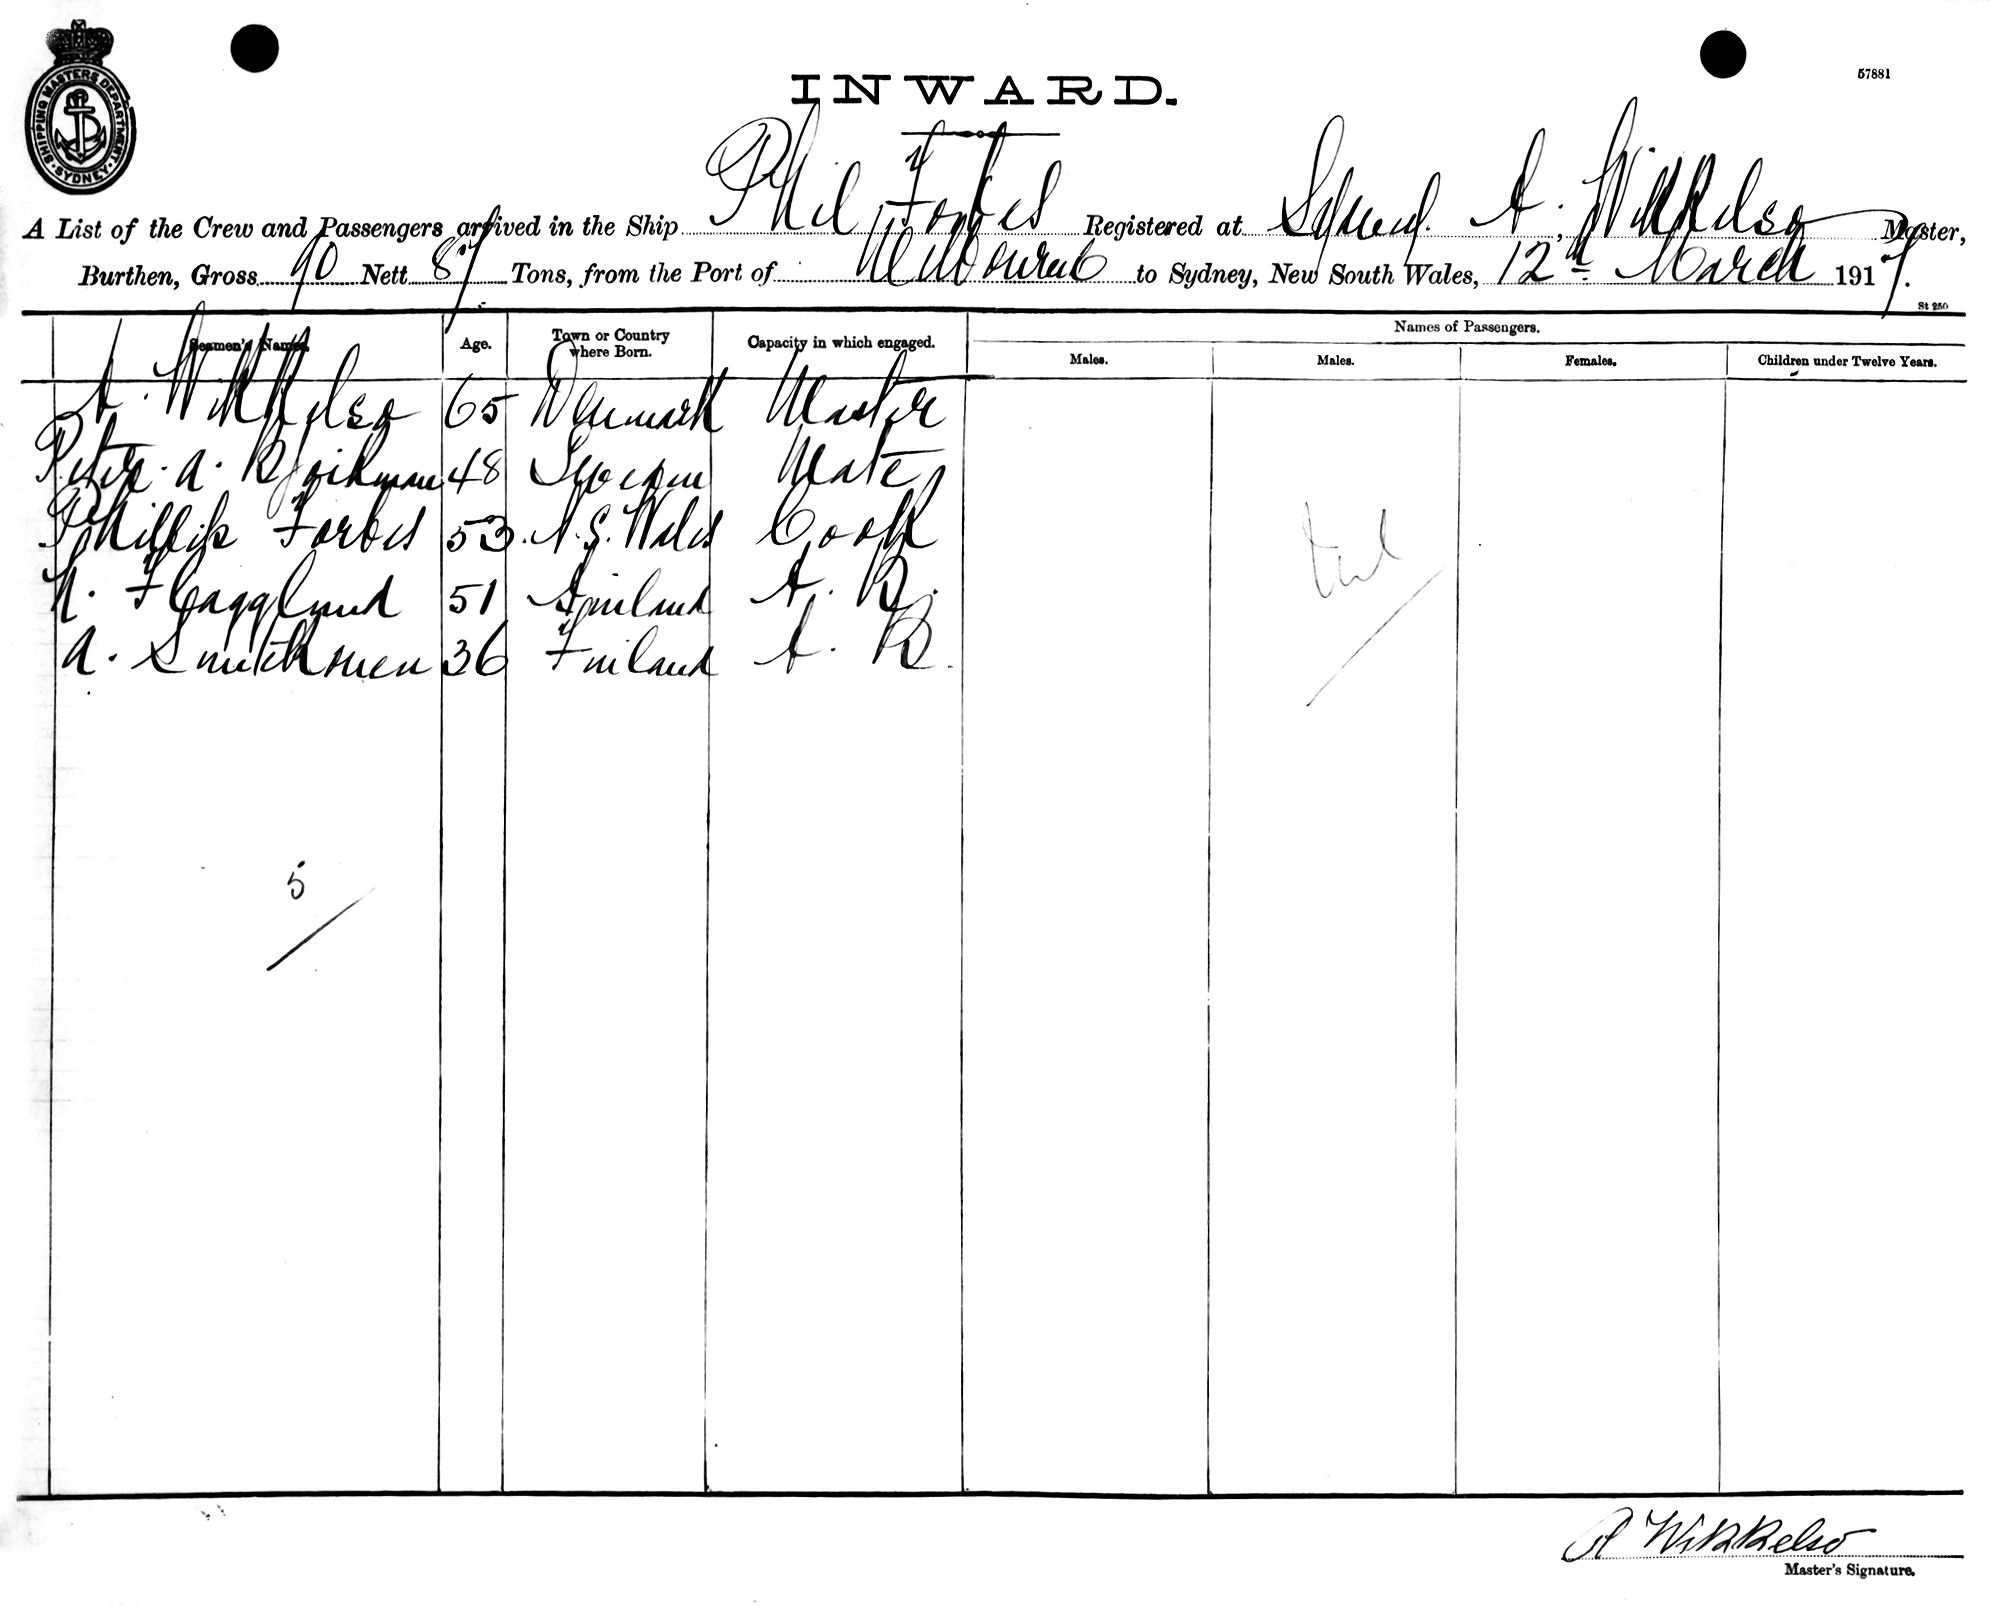 SHIPPING MASTERS DEPARTMENT · SYDNEY ·
57881
INWARD.
A List of the Crew and Passengers arrived in the Ship Phil Forbes Registered at Sydney. A. Wikkelso Master,
Burthen, Gross 90 Nett 87 Tons, from the Port of Melbourne to Sydney, New South Wales, 12th March 1917.
St 250
Seamen's Names. Age. Town or Country where Born. Capacity in which engaged. Names of Passengers.
Males. Males. Females. Children under Twelve Years.
A. Wikkelso 65 Denmark Master
Peter. A. 48 Sweden Mate
Phillip Forbes 53 N.S. Wales Cook
N. Haggland 51 Finland A. B.
A. 36 Finland A. B.
5
A Wikkelso
Master's Signature.